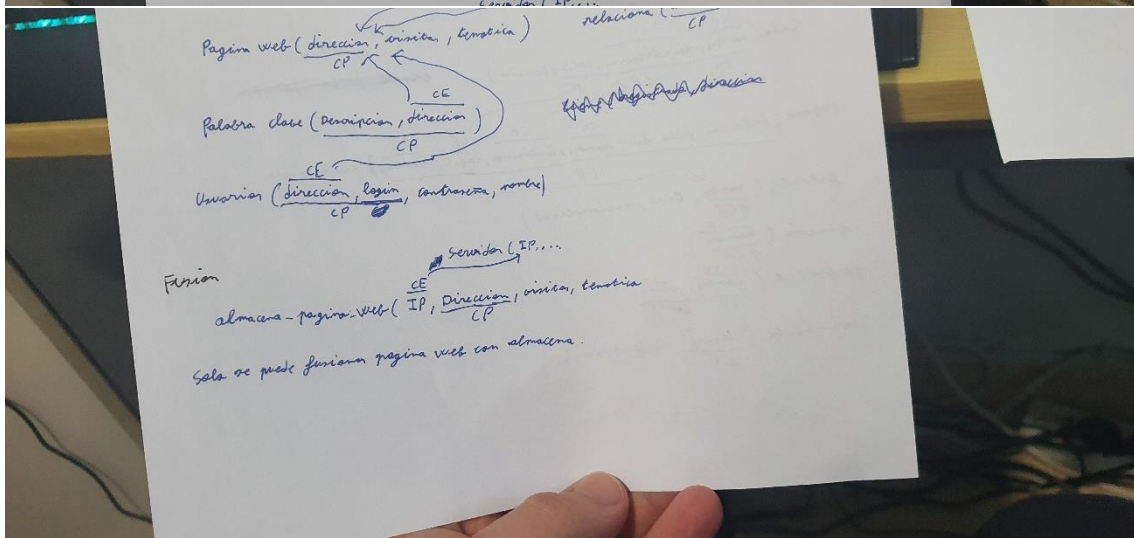 Servidor ( IP, ....
relaciona (
CP
Pagina web ( direccion, visitas, tematica )
CP
CE
Palabra clave ( Descripcion, direccion )
CP
CE
Usuarios ( direccion, login, contraseña, nombre )
CP
Fusion
Servidor ( IP, ...
CE
almacena_pagina_web ( IP, Direccion, visitas, tematica
CP
Solo se puede fusionar pagina web con almacena.